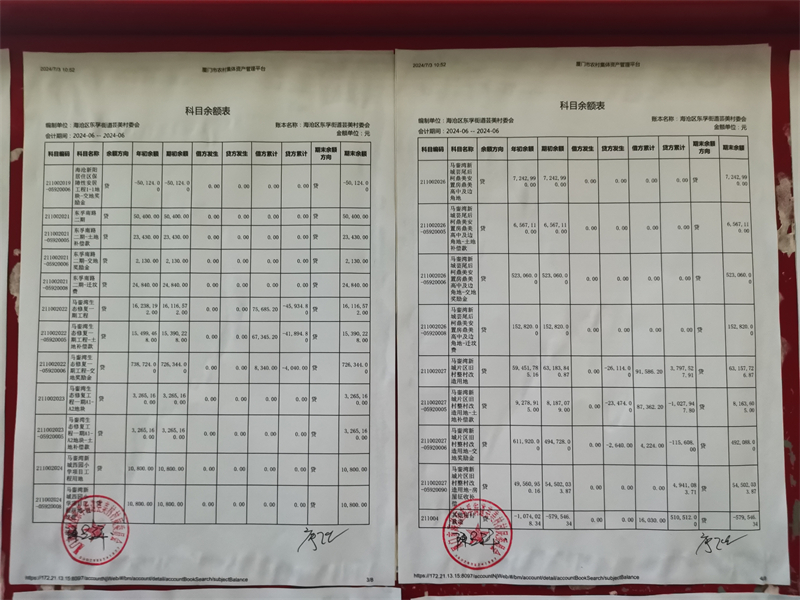 2024/7/3 10:52
厦门市农村集体资产管理平台
科目余额表
编制单位：海沧区东孚街道芸美村委会
账本名称：海沧区东孚街道芸美村委会
会计期间：2024-06 -- 2024-06
金额单位：元
科目编码 科目名称 余额方向 年初余额 期初余额 借方发生 贷方发生 借方累计 贷方累计 期末余额方向 期末余额
211002019-05920006 贷 -50,124.00 -50,124.00 0.00 0.00 0.00 0.00 贷 -50,124.00
211002021 东孚南路二期 贷 50,400.00 50,400.00 0.00 0.00 0.00 0.00 贷 50,400.00
211002021-05920005 东孚南路二期-土地补偿款 贷 23,430.00 23,430.00 0.00 0.00 0.00 0.00 贷 23,430.00
211002021-05920006 东孚南路二期-交地奖励金 贷 2,130.00 2,130.00 0.00 0.00 0.00 0.00 贷 2,130.00
211002021-05920008 东孚南路二期-迁坟费 贷 24,840.00 24,840.00 0.00 0.00 0.00 0.00 贷 24,840.00
211002022 马銮湾生态修复一期工程 贷 16,238,192.00 16,116,572.00 0.00 0.00 75,685.20 -45,934.80 贷 16,116,572.00
211002022-05920005 马銮湾生态修复一期工程-土地补偿款 贷 15,499,468.00 15,390,228.00 0.00 0.00 67,345.20 -41,894.80 贷 15,390,228.00
211002022-05920006 马銮湾生态修复一期工程-交地奖励金 贷 738,724.00 726,344.00 0.00 0.00 8,340.00 -4,040.00 贷 726,344.00
211002023 马銮湾生态修复工程一期A1-A2地块 贷 3,265,160.00 3,265,160.00 0.00 0.00 0.00 0.00 贷 3,265,160.00
211002023-05920005 马銮湾生态修复工程一期A1-A2地块-土地补偿款 贷 3,265,160.00 3,265,160.00 0.00 0.00 0.00 0.00 贷 3,265,160.00
211002024 马銮湾新城西园小学项目工程用地 贷 10,800.00 10,800.00 0.00 0.00 0.00 0.00 贷 10,800.00
211002024 贷 10,800.00 10,800.00 0.00 0.00 0.00 0.00 贷 10,800.00
https://172.21.13.15:8097/accountNjWeb/#/bm/account/detail/accountBookSearch/subjectBalance
3/8
2024/7/3 10:52
厦门市农村集体资产管理平台
科目余额表
编制单位：海沧区东孚街道芸美村委会
账本名称：海沧区东孚街道芸美村委会
会计期间：2024-06 -- 2024-06
金额单位：元
科目编码 科目名称 余额方向 年初余额 期初余额 借方发生 贷方发生 借方累计 贷方累计 期末余额方向 期末余额
211002026 马銮湾新城芸尾后柯鼎美安置房鼎美高中及边角地 贷 7,242,990.00 7,242,990.00 0.00 0.00 0.00 0.00 贷 7,242,990.00
211002026-05920005 马銮湾新城芸尾后柯鼎美安置房鼎美高中及边角地-土地补偿款 贷 6,567,110.00 6,567,110.00 0.00 0.00 0.00 0.00 贷 6,567,110.00
211002026-05920006 马銮湾新城芸尾后柯鼎美安置房鼎美高中及边角地-交地奖励金 贷 523,060.00 523,060.00 0.00 0.00 0.00 0.00 贷 523,060.00
211002026-05920008 马銮湾新城芸尾后柯鼎美安置房鼎美高中及边角地-迁坟费 贷 152,820.00 152,820.00 0.00 0.00 0.00 0.00 贷 152,820.00
211002027 马銮湾新城片区旧村整村改造用地 贷 59,451,785.16 63,183,840.87 0.00 -26,114.00 91,586.20 3,797,527.91 贷 63,157,726.87
211002027-05920005 马銮湾新城片区旧村整村改造用地-土地补偿款 贷 9,278,915.00 8,187,079.00 0.00 -23,474.00 87,362.20 -1,027,947.80 贷 8,163,605.00
211002027-05920006 马銮湾新城片区旧村整村改造用地-交地奖励金 贷 611,920.00 494,728.00 0.00 -2,640.00 4,224.00 -115,608.00 贷 492,088.00
211002027-05920090 贷 49,560,950.16 54,502,033.87 0.00 0.00 0.00 4,941,083.71 贷 54,502,033.87
211004 贷 -1,074,028.34 -579,546.34 0.00 0.00 16,030.00 510,512.00 贷 -579,546.34
https://172.21.13.15:8097/accountNjWeb/#/bm/account/detail/accountBookSearch/subjectBalance
4/8